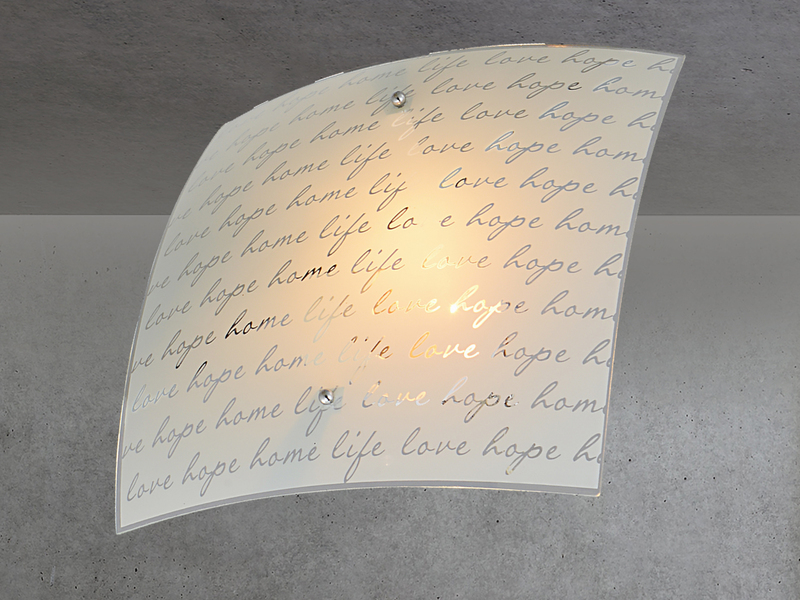 home life love hope h
hope home life love hope hom
love hope home life love hope h
hope home life love hope hom
love hope home lif love hope h
ve hope home life lo e hope hom
love hope home life love hope h
ve hope home life love hope hom
love hope home life love hope h
ve hope home life love hope hom
love hope home life love hope h